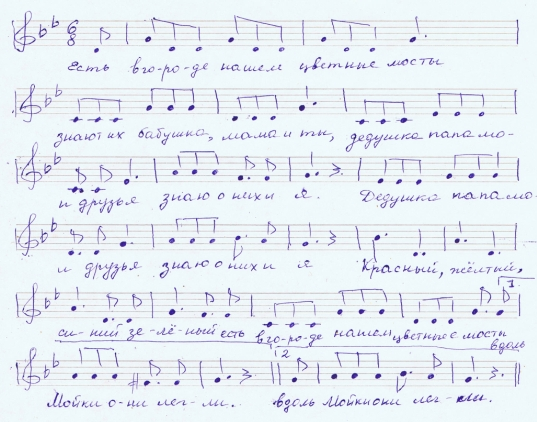 6 8
Есть в го-ро-де нашем цветные мосты
знают их бабушка, мама и ты, дедушка папа мо-
и друзья знаю о них и я. Дедушка папа мо-
и друзья знаю о них и я Красный, жёлтый,
1
си-ний зе-лё-ный есть в го-ро-де нашем цветные мосты
вдоль
2
Мойки о-ни лег-ли. вдоль Мойки они лег-ли.